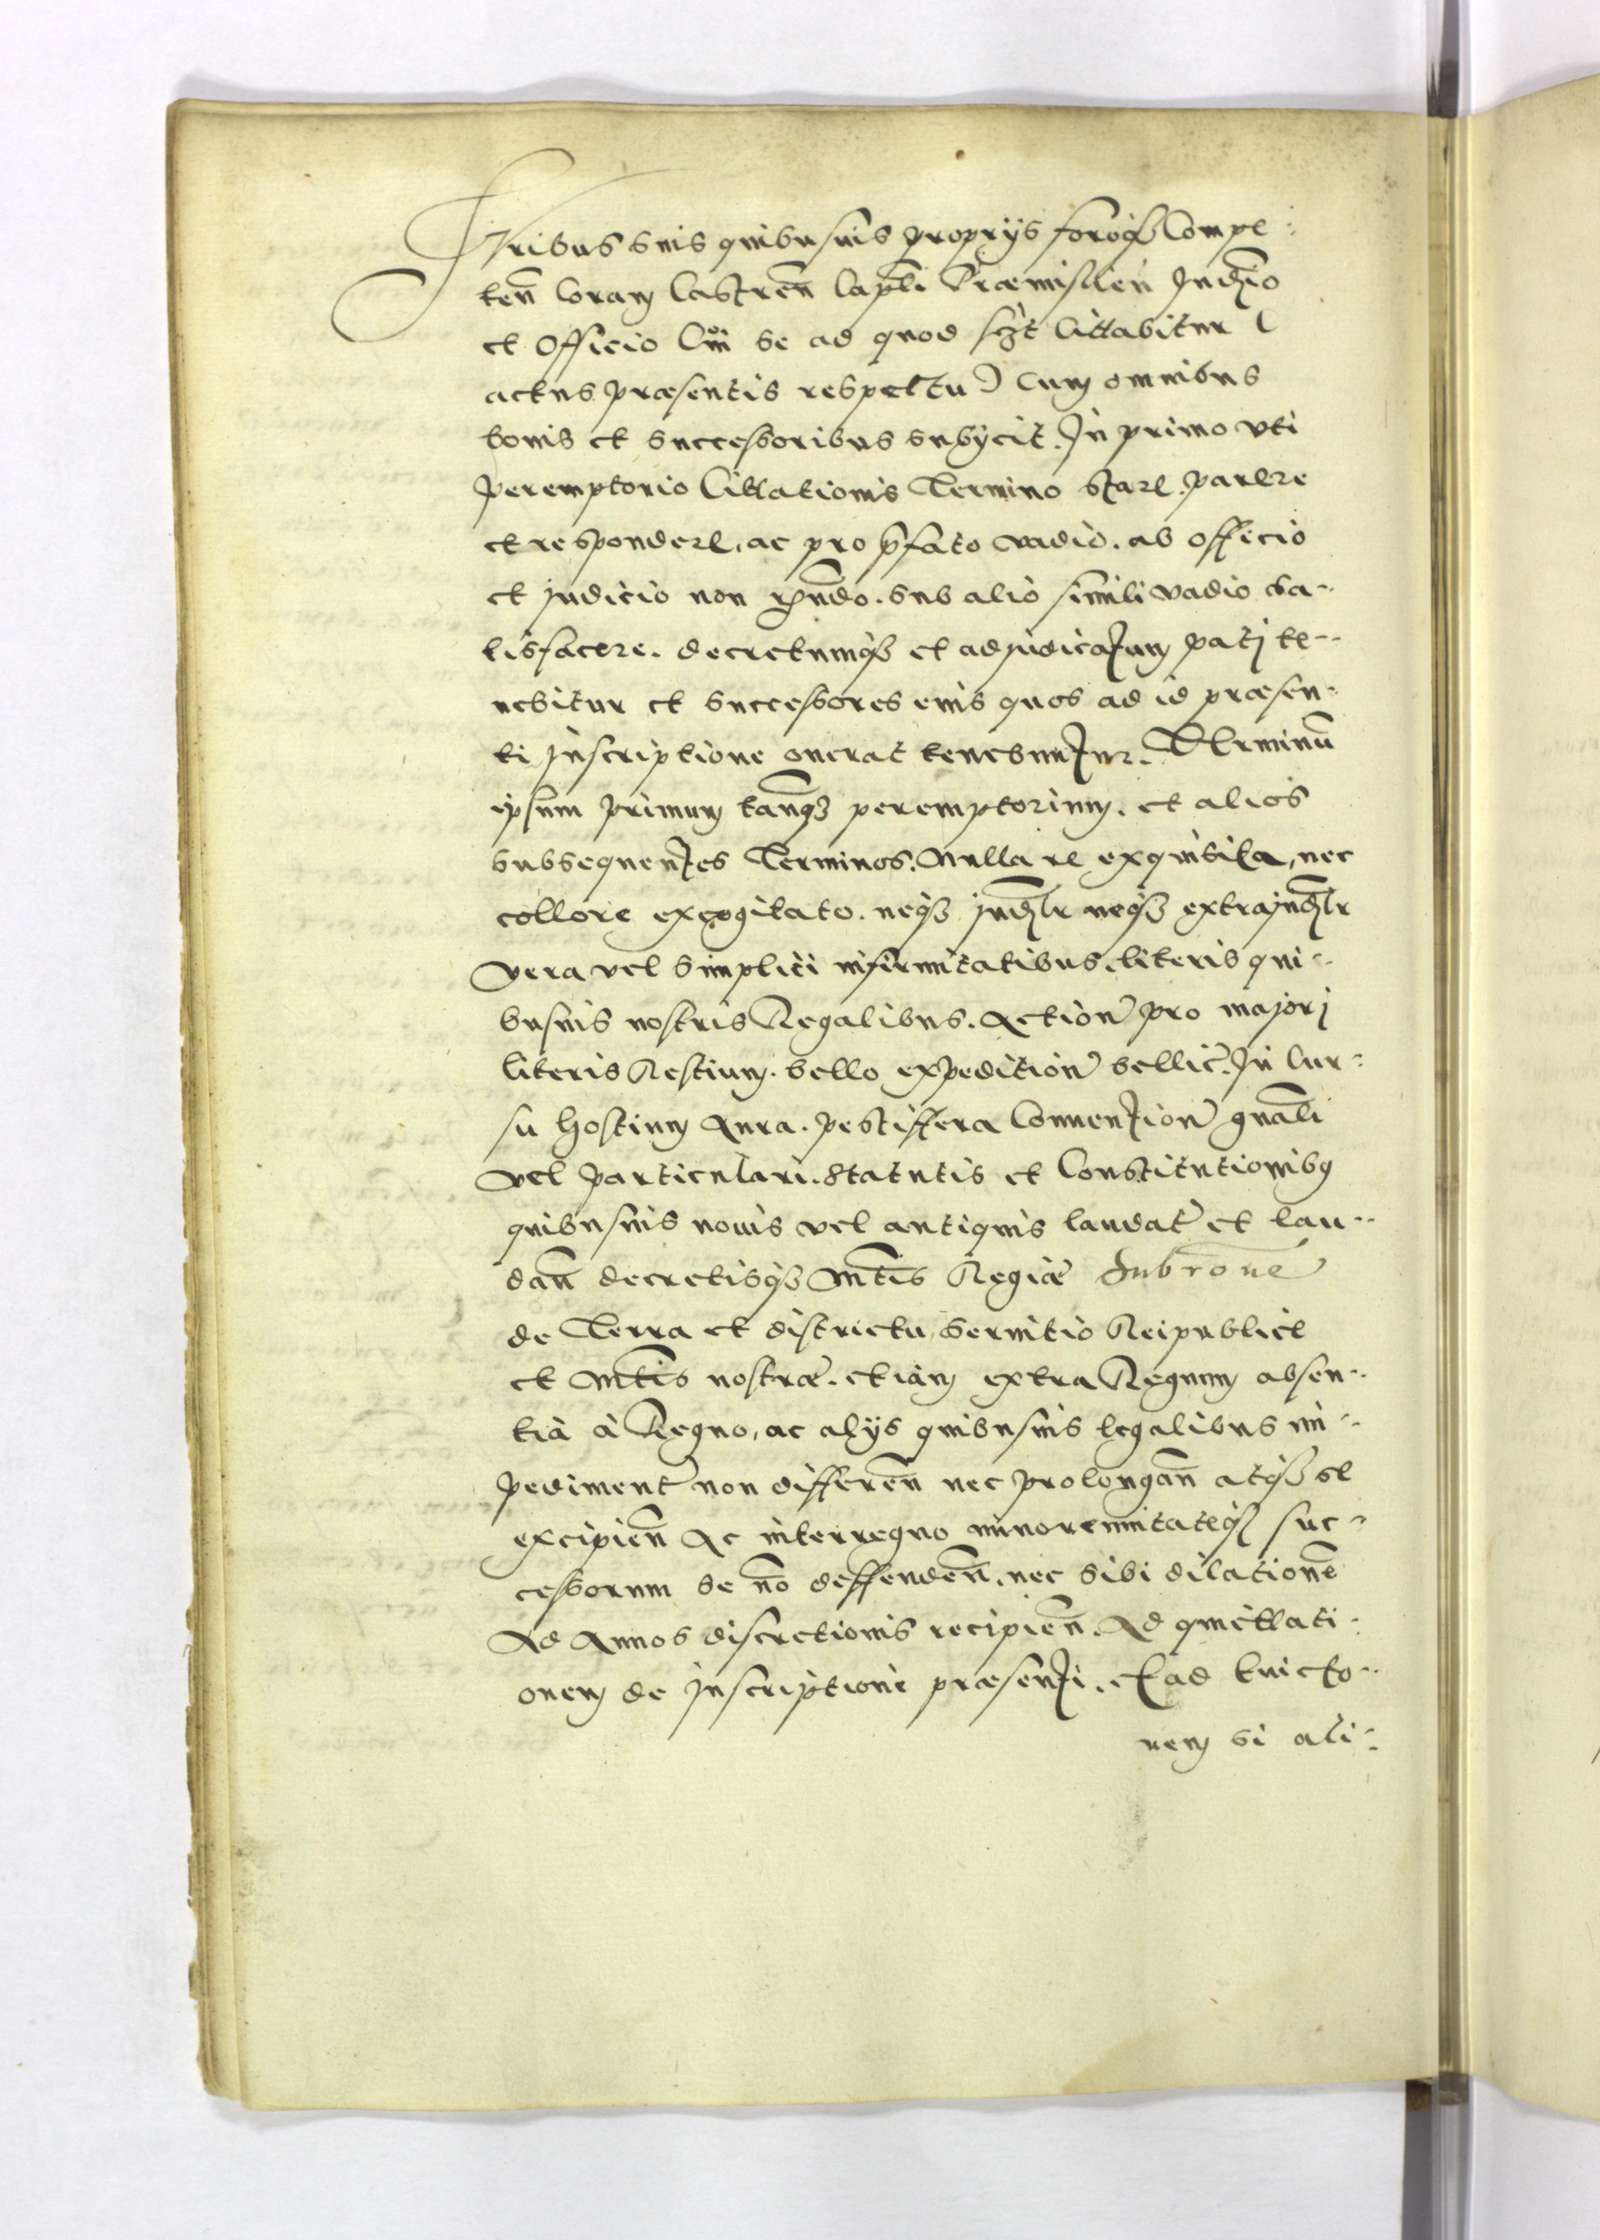 Juribus suis quibusuis proprÿs foroq₃ Compe:
ten̄ Coram Castren̄ Cap̄li Præmislień Jud̄io
et Officio Cui se ad quod scʒt Cittabitur (
actus præsentis respectu) Cum omnibus
bonis et successoribus subÿcit. In primo vti
peremptorio Cittationis Termino stare. parere
et respondere, ac pro p̄fato vadio. ab officio
et judicio non rn̄do. sub alio simili vadio sa-
tisfacere. decretumq₃ et adjudicatum patj te-
nebitur et successores eius quos ad id præsen-
ti Jnscriptione onerat tenebuntur. Terminū
ipsum primum tanq₃ peremptorium. et alios
subsequentes Terminos. Nulla re exquisita, nec
collore excogitato. neq₃ jud̄lr neq₃ extrajud̄lr
vera vel simplici infirmitatibus, literis qui-
busuis nostris Regalibus. Action̄ pro majorj
literis Restium. bello expedition̄ bellic̄. In Cur-
su hostium Aura. pestiffera Conuention̄ gn̄ali
vel particulari. Statutis et Constitutionibq
quibusuis nouis vel antiquis laudat̄ et lau-
dan̄ decretisq₃ Mt̄is Regiæ Subrone
de Terra et districtu, seruitio Reipublice
et Mt̄is nostræ. etiam extra Regnum absen-
tia à Regno, ac alÿs quibusuis legalibus im-
pediment̄ non differen̄ nec prolongan̄ atq₃ se
excipien̄ Ac interregno minorennitateq₃ suc-
cessorum se nō deffenden̄. nec sibi dilationē
Ad Annos discretionis recipien̄. Ad quiettati-
onem de Jnscriptione præsenti. et ad Euicto-
nem si ali: